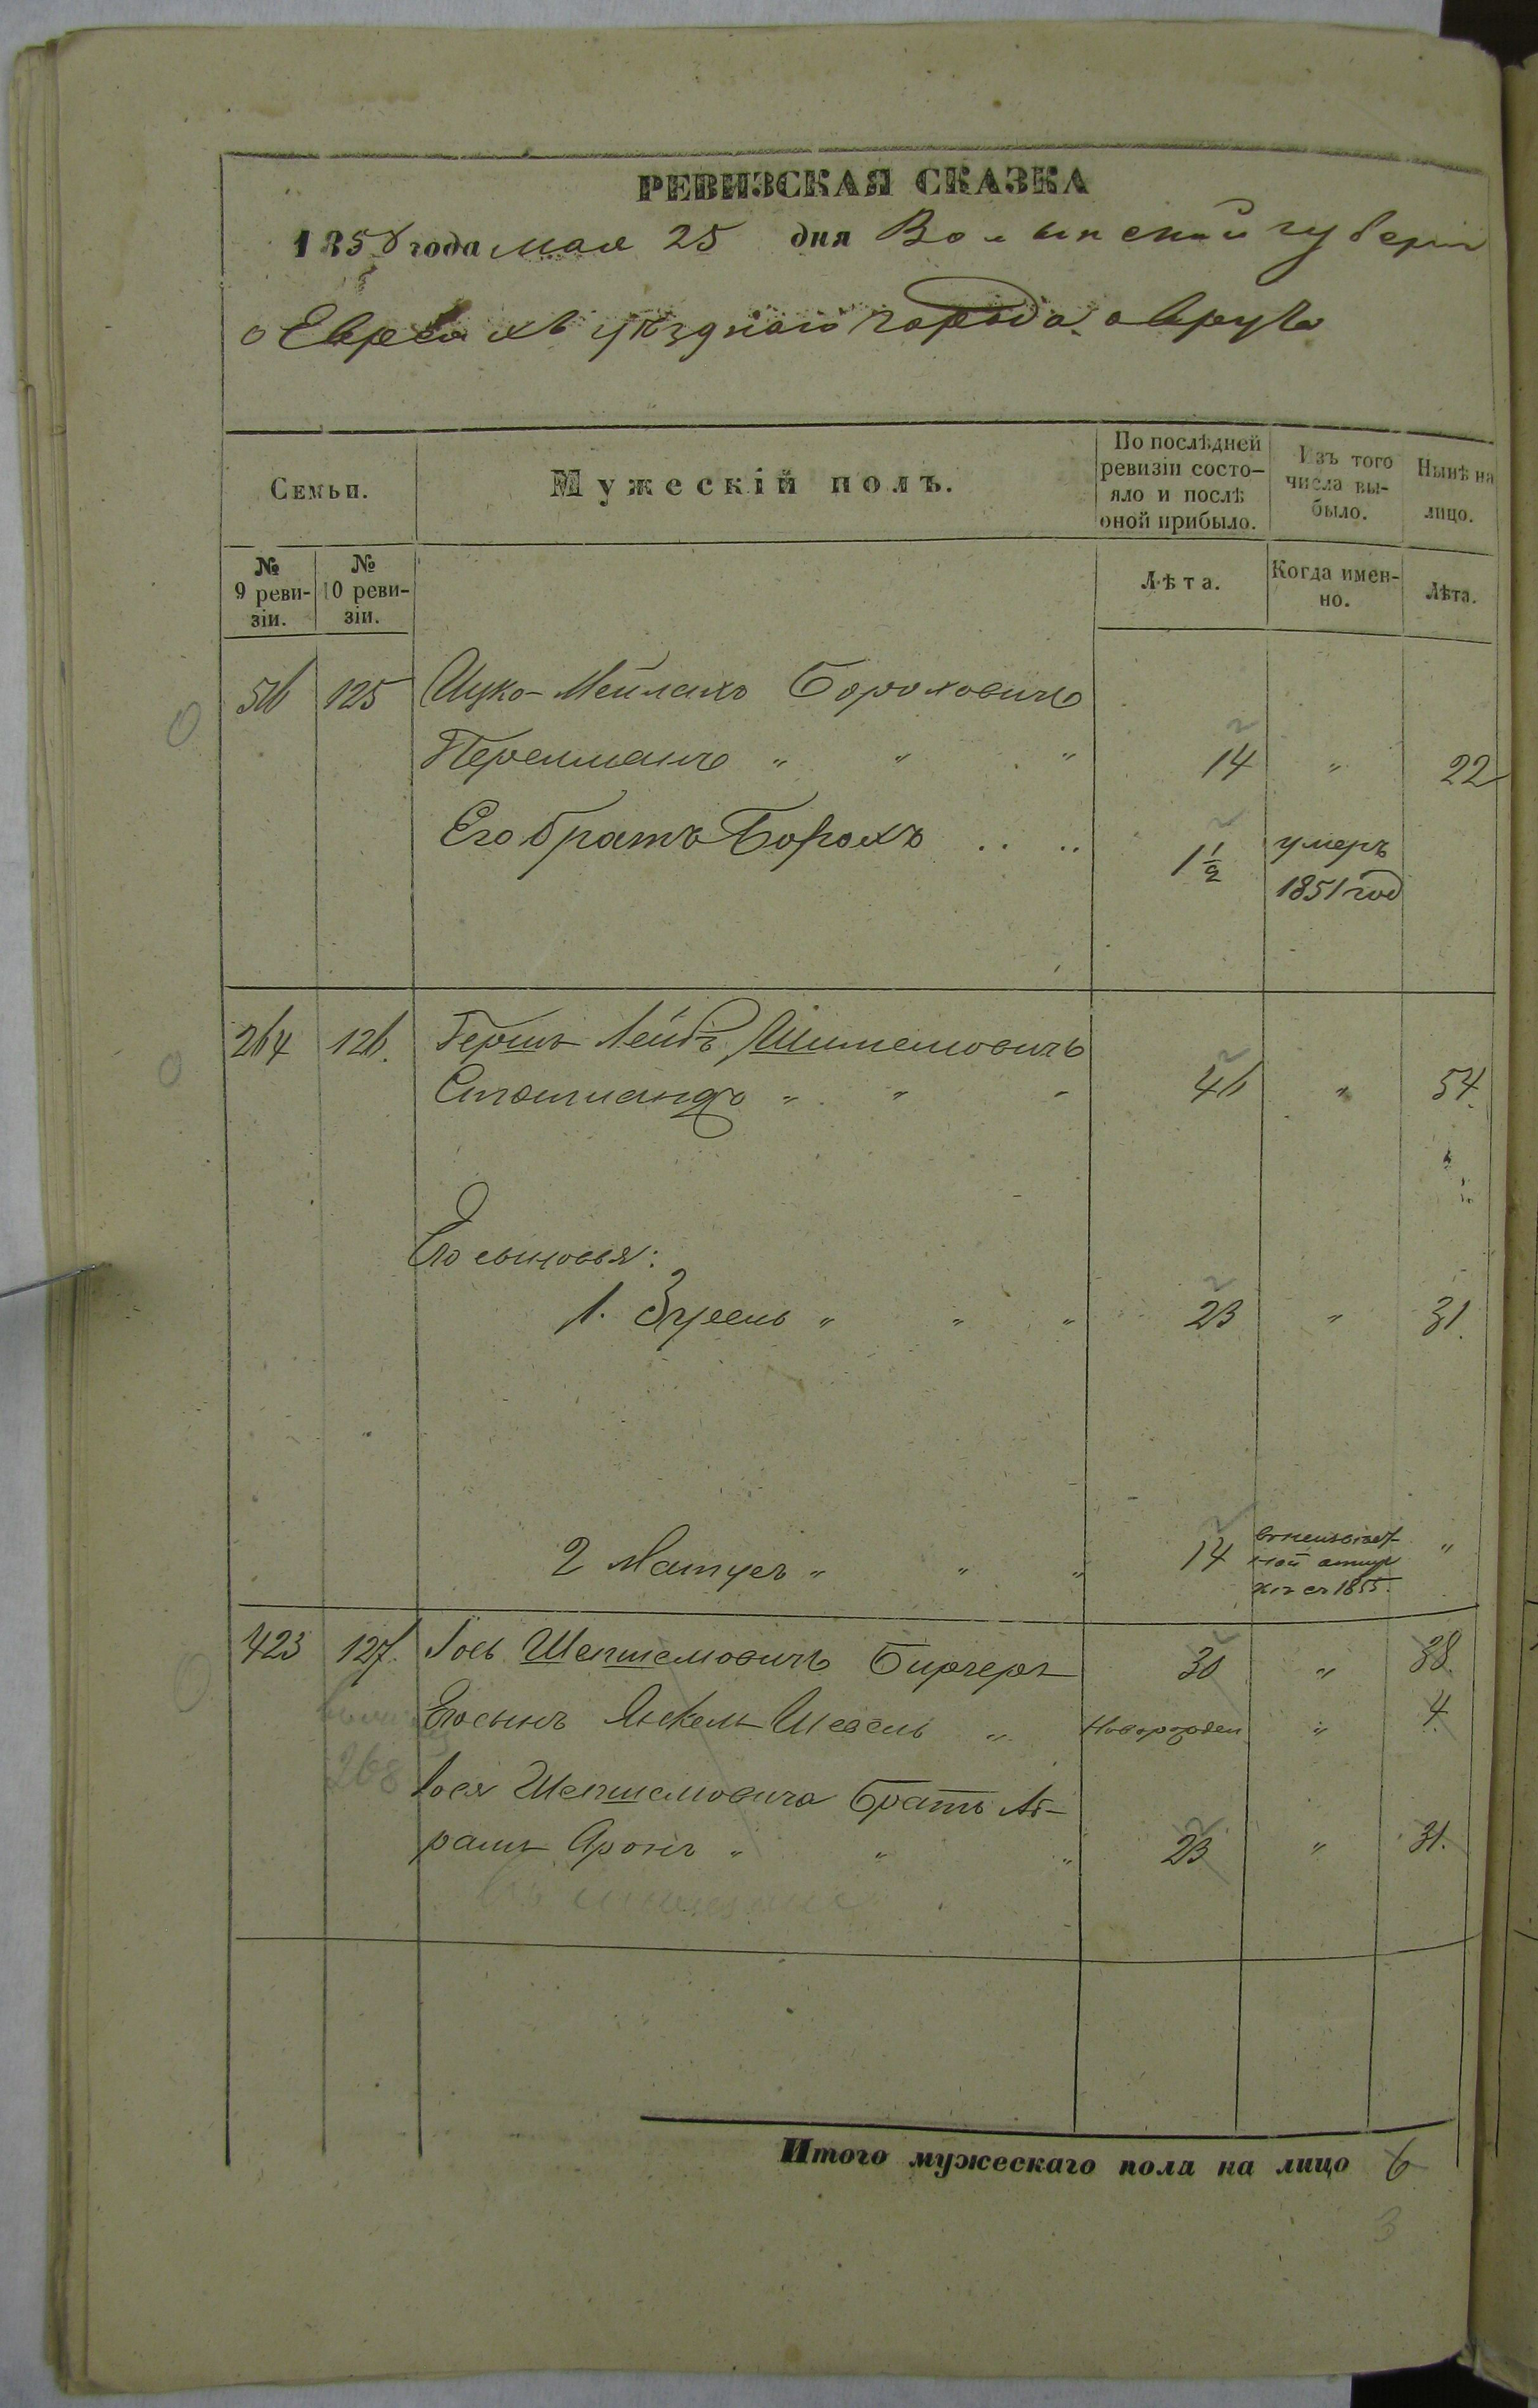 РЕВИЗСКАЯ СКАЗКА
1858 года мая 25 дня Волынской губерніи
о Евреяхъ уѣзднаго города овруча
Семьи. Мужескій полъ. По послѣдней ревизіи состо- Изъ того Нынѣ на
яло и послѣ числа вы- лицо.
оной прибыло. было.
№ 9 реви- зіи. № 10 реви- зіи. Лѣта. Когда имен- но. Лѣта.
56 125 Ицко-Мейлахъ Бороховичъ
Перельманъ " " " 14 " 22
Его братъ Борохъ .. .. 1 1/2 умеръ
1851 год
264 126. Гершъ Лейбъ
46 " 54.
Его сыновья:
1. Зусель " " " 23 " 31.
2 Матусъ " " " 14 "
съ 1855.
423 127. Іось Шепшелювичъ Бирчеръ 30 " 38.
Его сынъ Янкель Шевель " Новорожден " 4.
268 Іося Шепшелювича братъ Аб-
рамъ Аронъ " " " 23 " 31.
Итого мужескаго пола на лицо 6
3